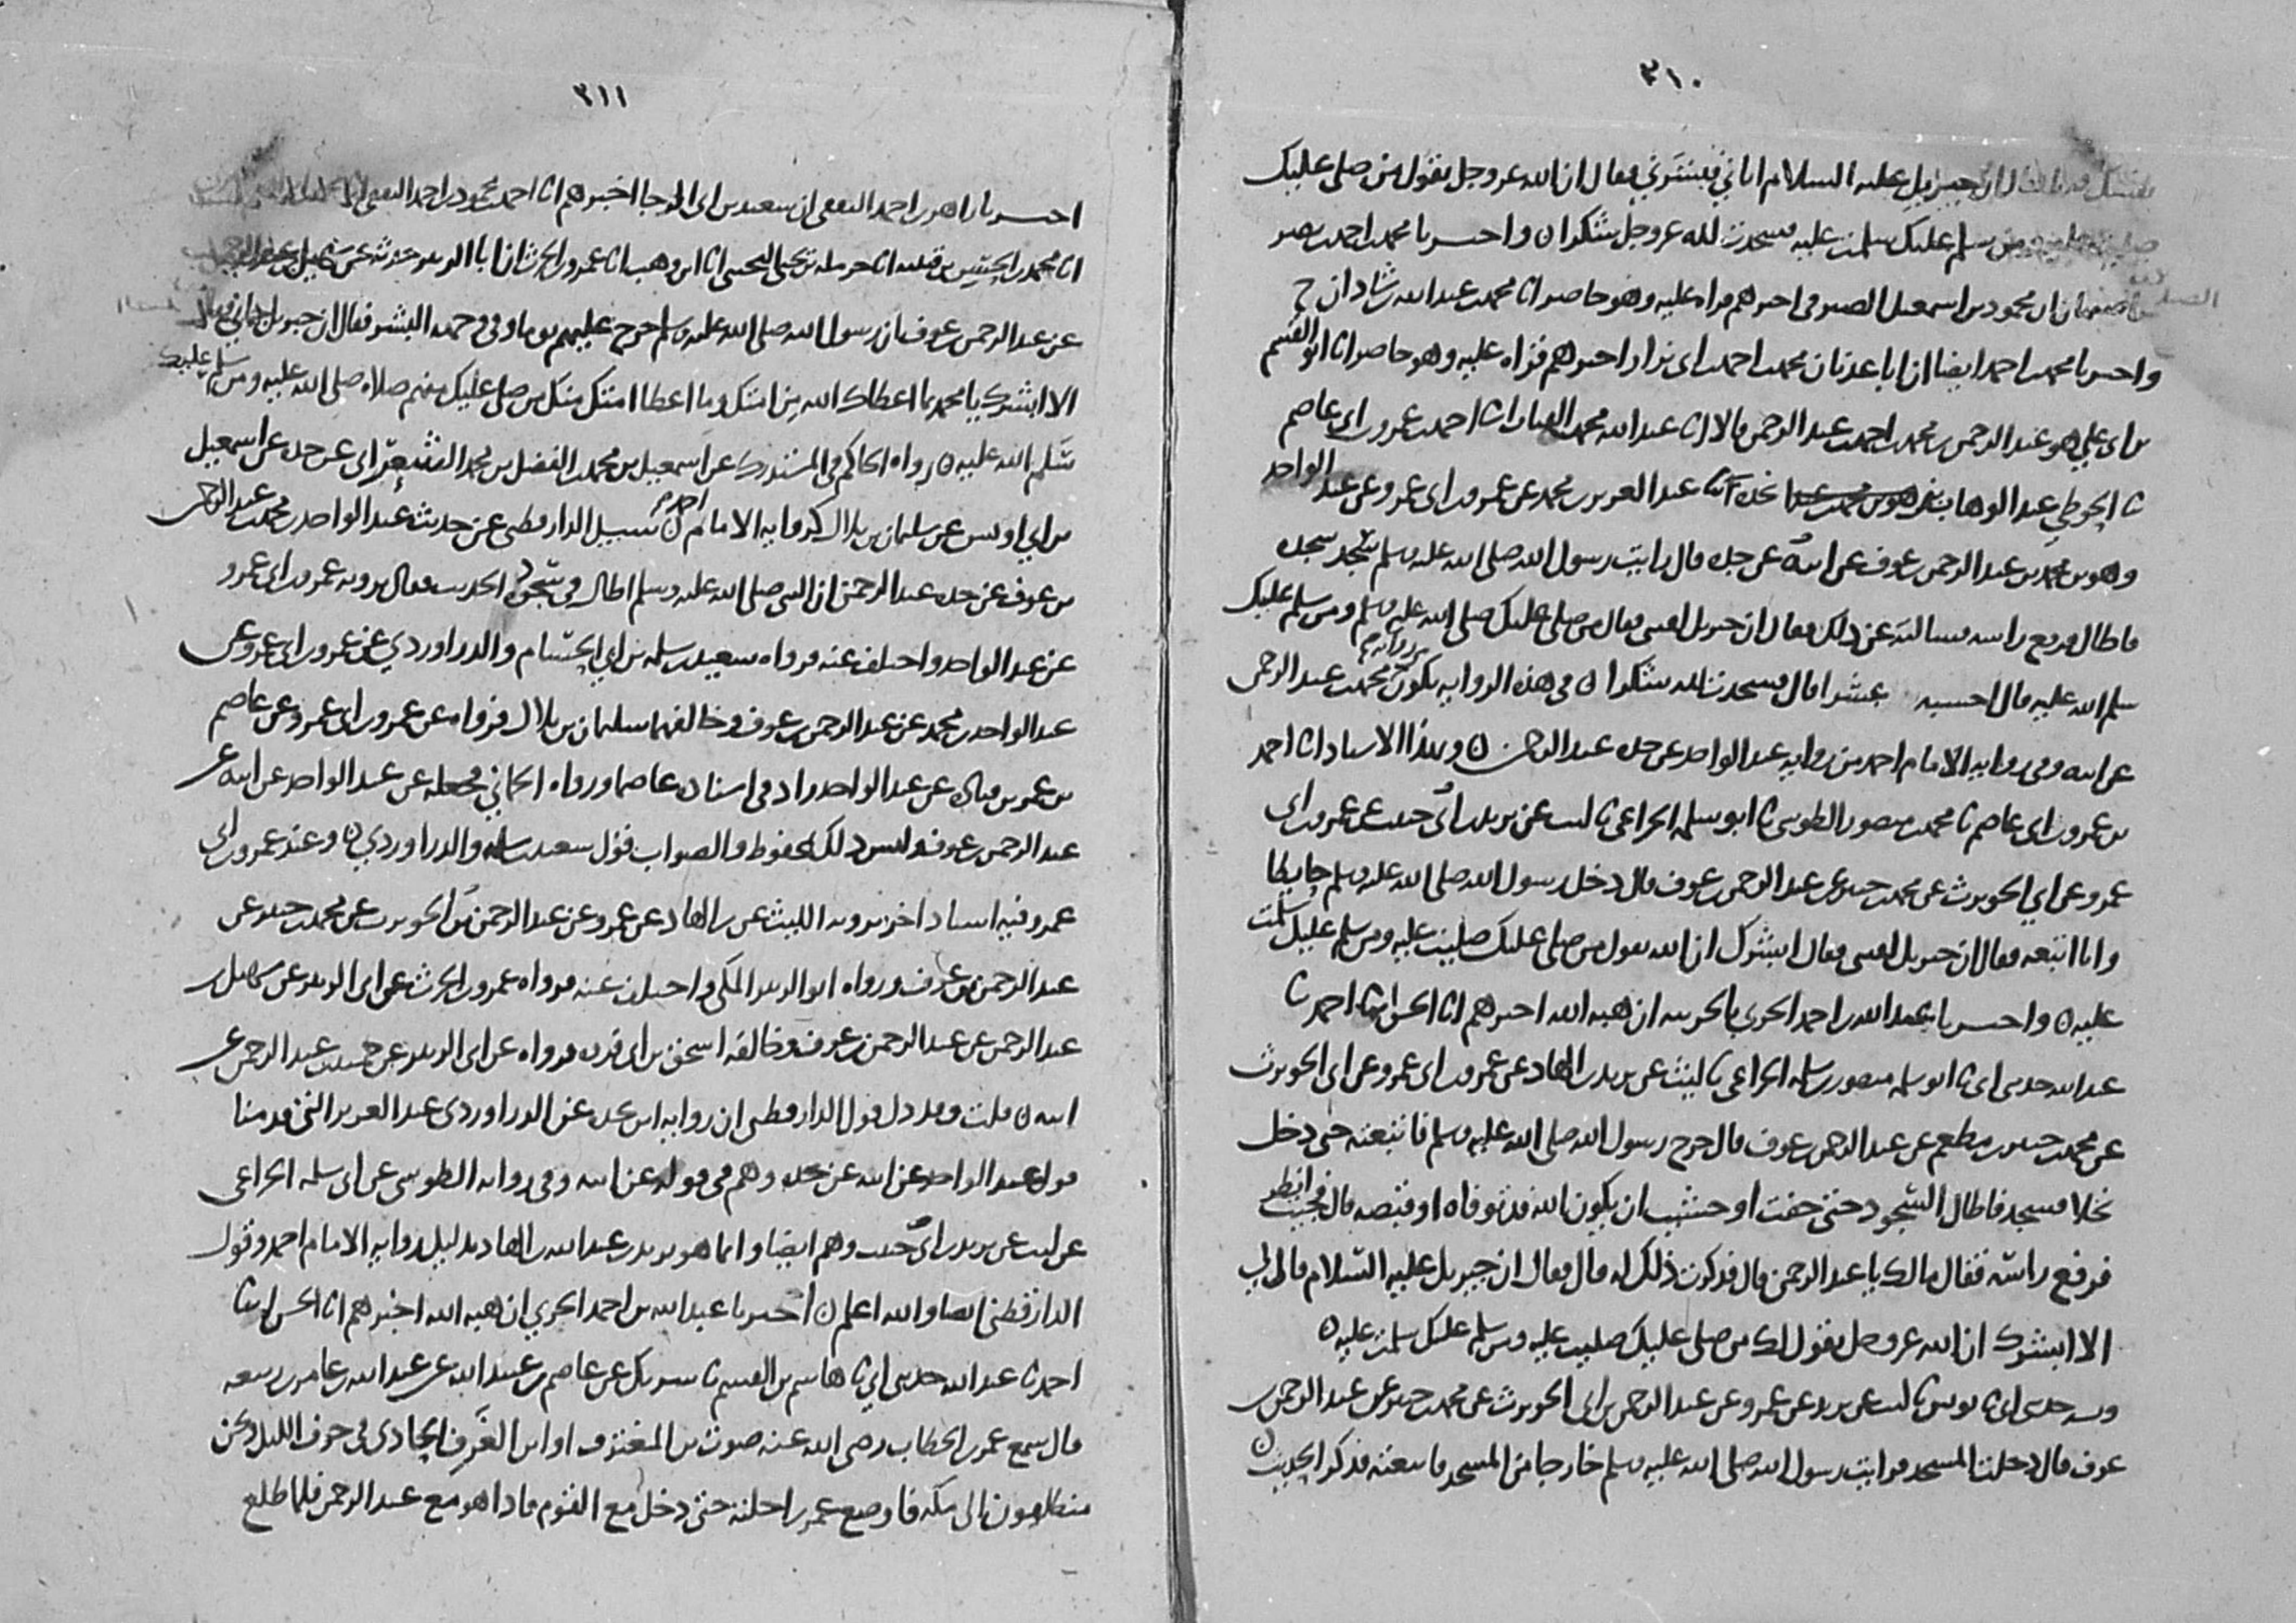 ٣١٠
فقال ان جبريل عليه السلام اتاني فبشرني فقال ان الله عز وجل يقول من صلى عليك
صليت عليه ومن سلم عليك سلمت عليه فسجدت لله عز وجل شكرا ن واخبرنا محمد بن احمد بن نصر
ان محمود بن اسمعيل الصيرفي اخبرهم قراه عليه وهو حاضر انا محمد بن عبد الله بن شاذان ح
واخبرنا محمد بن احمد ايضا ان ابا عدنان محمد بن احمد بن ابي نزار اخبرهم قراه عليه وهو حاضر انا ابو القسم
بن ابي علي هو عبد الرحمن بن محمد بن احمد بن عبد الرحمن قالا انا عبد الله بن محمد القباب انا احمد بن عمرو بن ابي عاصم
ثا الحوطي عبد الوهاب بن نجده ثنا عبد العزيز بن محمد عن عمرو بن ابي عمرو عن عبد الواحد
وهو بن محمد بن عبد الرحمن بن عوف عن ابيه عن جده قال رايت رسول الله صلى الله عليه وسلم سجد سجده
فاطال فرفع راسه فسالته عن ذلك فقال ان جبريل لقيني فقال من صلى عليك صلى الله عليه وسلم ومن سلم عليك
سلم الله عليه قال احسبه عشرا قال فسجدت لله شكرا ن في هذه الروايه يكون من روايه محمد بن عبد الرحمن
عن ابيه وفي روايه الامام احمد من روايه عبد الواحد عن جده عبد الرحمن ن وبهذا الاسناد انا احمد
بن عمرو بن ابي عاصم ثا محمد بن منصور الطوسي ثا ابو سلمه الخزاعي ثا ليث عن يزيد بن ابي حبيب عن عمرو بن ابي
عمرو عن ابي الحويرث عن محمد بن جبير عن عبد الرحمن بن عوف قال دخل رسول الله صلى الله عليه وسلم حايطا
وانا اتبعه فقال ان جبريل لقيني فقال ابشرك ان الله يقول من صلى عليك صليت عليه ومن سلم عليك سلمت
عليه ن واخبرنا عبد الله بن احمد الحربي بالحربيه ان هبه الله اخبرهم انا الحسن انا احمد ثا
عبد الله حدثني ابي ثا ابو سلمه منصور بن سلمه الخزاعي ثا ليث عن يزيد بن الهاد عن عمرو بن ابي عمرو عن ابي الحويرث
عن محمد بن جبير بن مطعم عن عبد الرحمن بن عوف قال خرج رسول الله صلى الله عليه وسلم فاتبعته حتى دخل
نخلا فسجد فاطال السجود حتى خفت او خشيت ان يكون الله قد توفاه او قبضه قال فجيت انظر
فرفع راسه فقال مالك يا عبد الرحمن قال فذكرت ذلك له قال فقال ان جبريل عليه السلام قال لي
الا ابشرك ان الله عز وجل يقول لك من صلى عليك صليت عليه ومن سلم عليك سلمت عليه ن
وبه حدثني ابي ثا يونس ثا ليث عن يزيد عن عمرو عن عبد الرحمن بن ابي الحويرث عن محمد بن جبير عن عبد الرحمن بن
عوف قال دخلت المسجد فرايت رسول الله صلى الله عليه وسلم خارجا من المسجد فاتبعته فذكر الحديث ن
٣١١
اخبرنا زاهر بن احمد الثقفي ان سعيد بن ابي الرجا اخبرهم انا احمد بن محمود بن احمد الثقفي انا
انا محمد بن الحسن بن قتيبه انا حرمله بن يحيى التجيبي انا ابن وهب انا عمرو بن الحرث ان ابا الزبير حدثه عن سهيل بن عبد الرحمن
عن عبد الرحمن بن عوف ان رسول الله صلى الله عليه وسلم خرج عليهم يوما وفي وجهه البشر فقال ان جبريل جاني فقال
الا ابشرك يا محمد بما اعطاك الله من امتك وما اعطا امتك منك من صلى عليك منهم صلاه صلى الله عليه ومن سلم عليك
سلم الله عليه ن رواه الحاكم في المستدرك عن اسمعيل بن محمد بن الفضل بن محمد الشعراني عن جده عن اسمعيل
بن ابي اويس عن سليمان بن بلال كروايه الامام احمد ن سيل الدارقطني عن حديث عبد الواحد بن محمد بن عبد الرحمن
بن عوف عن جده عبد الرحمن ان النبي صلى الله عليه وسلم اطال في سجوده الحديث فقال يرويه عمرو بن ابي عمرو
عن عبد الواحد واختلف عنه فرواه سعيد بن سلمه بن ابي الحسام والدراوردي عن عمرو بن ابي عمرو عن
عبد الواحد بن محمد عن عبد الرحمن بن عوف وخالفهما سليمان بن بلال فرواه عن عمرو بن ابي عمرو عن عاصم
بن عمر بن قتاده عن عبد الواحد زاد في اسناده عاصما ورواه الحماني فجعله عن عبد الواحد عن ابيه عن
عبد الرحمن بن عوف وليس ذلك بمحفوظ والصواب قول سعيد بن سلمه والدراوردي ن وعند عمرو بن ابي
عمرو فيه اسناد اخر يرويه الليث عن بن الهاد عن عمرو عن عبد الرحمن بن الحويرث عن محمد بن جبير عن
عبد الرحمن بن عوف ورواه ابو الزبير المكي واختلف عنه فرواه عمرو بن الحرث عن ابي الزبير عن سهيل بن
عبد الرحمن عن عبد الرحمن بن عوف وخالفه اسحق بن ابي فروه فرواه عن ابي الزبير عن حميد بن عبد الرحمن عن
ابيه ن قلت وقد دل قول الدارقطني ان روايه عن الدراوردي عبد العزيز التي قدمنا
قوله عبد الواحد عن ابيه عن جده وهم في قوله عن ابيه وفي روايه الطوسي عن ابي سلمه الخزاعي
عن ليث عن يزيد بن ابي حبيب وهم ايضا وانما هو يزيد بن عبد الله بن الهاد بدليل روايه الامام احمد وقول
الدارقطني ايضا والله اعلم ن اخبرنا عبد الله بن احمد الحربي ان هبه الله اخبرهم انا الحسن انا
احمد ثا عبد الله حدثني ابي ثا هاشم بن القسم ثا شريك عن عاصم بن عبيد الله عن عبد الله بن عامر بن ربيعه
قال سمع عمر بن الخطاب رضي الله عنه صوت بن المغترف او ابن الغرف الحادي في جوف الليل ونحن
منطلقون الى مكه فاوضع عمر راحلته حتى دخل مع القوم فاذا هو مع عبد الرحمن فلما طلع